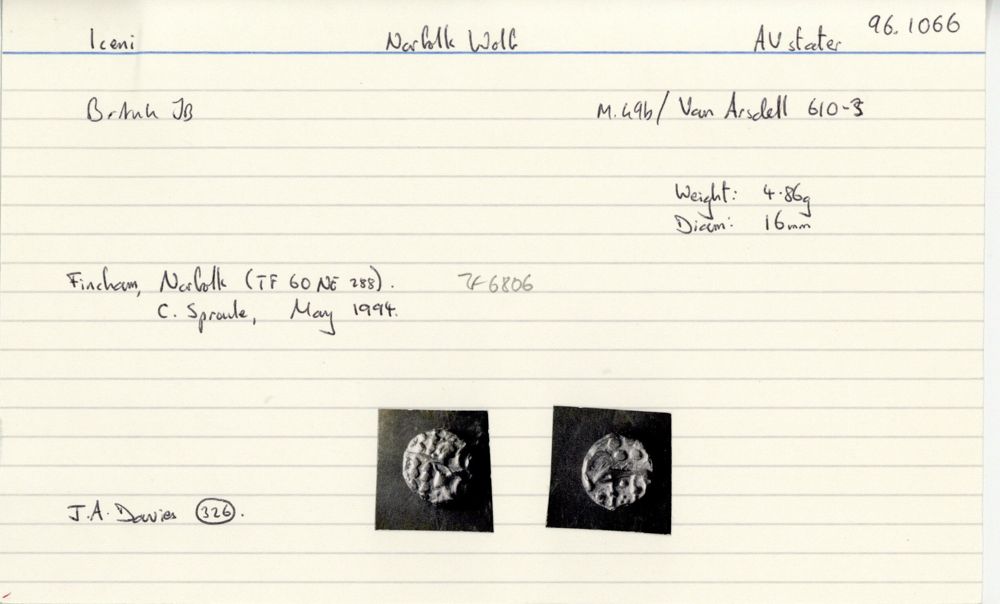 96.1066
Iceni Norfolk Wolf AV stater
British JB M.49b/ Van Arsdell 610-3
Weight: 4.86g
Diam: 16mm
Fincham, Norfolk (TF 60 NE 288). TF 6806
C. Sproule, May 1994.
J.A. Davies 326.